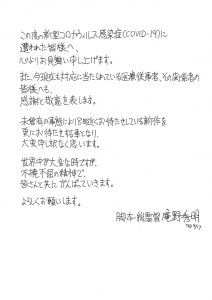 この度の新型コロナウィルス感染症(COVID-19)に
遭われた皆様へ、
心よりお見舞い申し上げます。
また、今現在も対応に当たられている医療従事者、その関係者の
皆様へも、
感謝と敬意を表します。
未曾有の事態により8年近くお待たせしている新作を
更にお待たせする事となり、
大変申し訳なく思います。
世界中が大変な時ですが、
不撓不屈の精神で、
皆さんと共にがんばっていきます。
よろしくお願いします。
脚本・総監督 庵野秀明